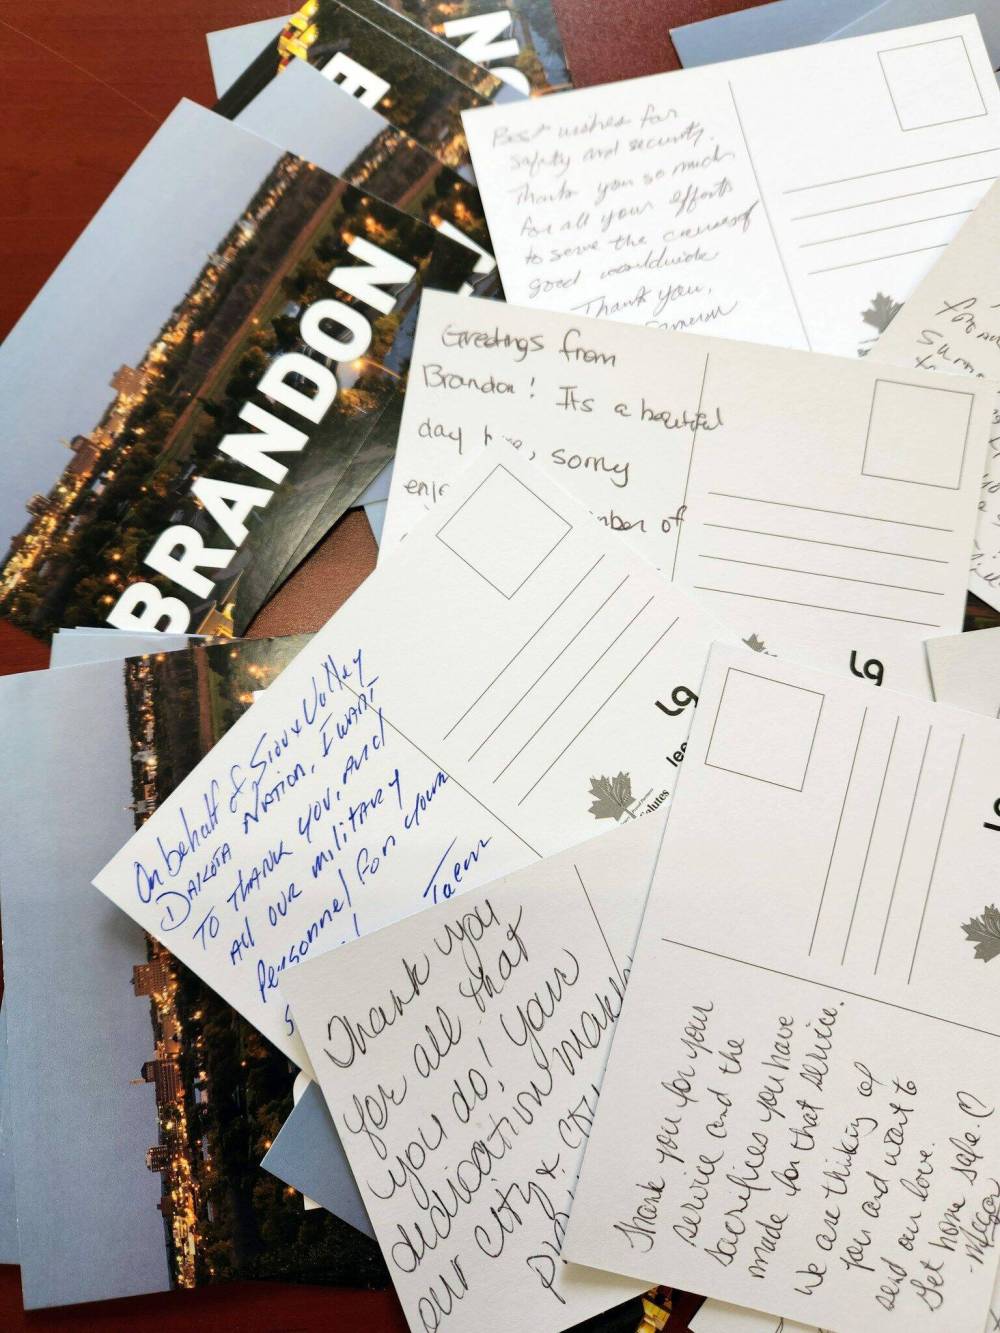 BRANDON
Best wishes for
safety and security.
Thank you so much
for all your efforts
to serve the causes of
good worldwide
Thank you,
Cameron
Greetings from
Brandon! Its a beautiful
day, sorry
number of
On behalf of Sioux Valley
DAKOTA NATION, I WANT
TO THANK YOU, AND
All our military
Personnel for your
lee
Salutes
Thank you
for all that
you do! Your
dedication makes
our city &
Thank you for your
service and the
sacrifices you have
made for that service.
We are thinking of
you and want to
send our love.
Get home safe. ♡